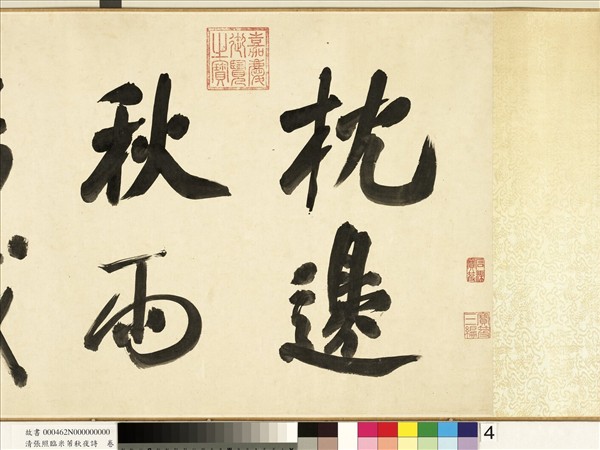 嘉慶
御覽
之寶
枕邊
秋雨
寶笈
三編
故書 000462N000000000
清張照臨米芾秋夜詩 卷
4